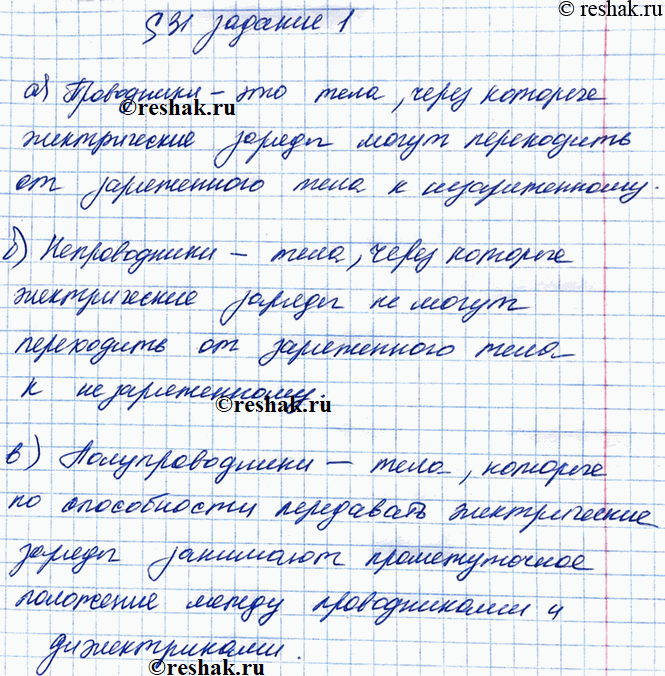 © reshak.ru
§ 31 задание 1
а) Проводники – это тела, через которые
© reshak.ru
электрические заряды могут переходить
от заряженного тела к незаряженному.
б) Непроводники – тела, через которые
электрические заряды не могут
переходить от заряженного тела
к незаряженному.
© reshak.ru
в) Полупроводники – тела, которые
по способности передавать электрические
заряды занимают промежуточное
положение между проводниками и
диэлектриками.
© reshak.ru